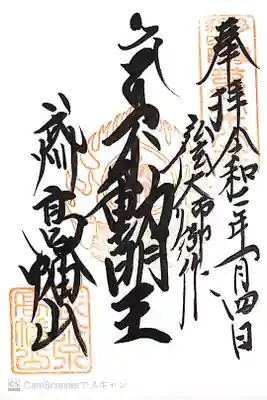 奉拝 令和二年一月四日
弘法大師御作
不動明王
武州 高幡山
CS CamScannerでスキャン